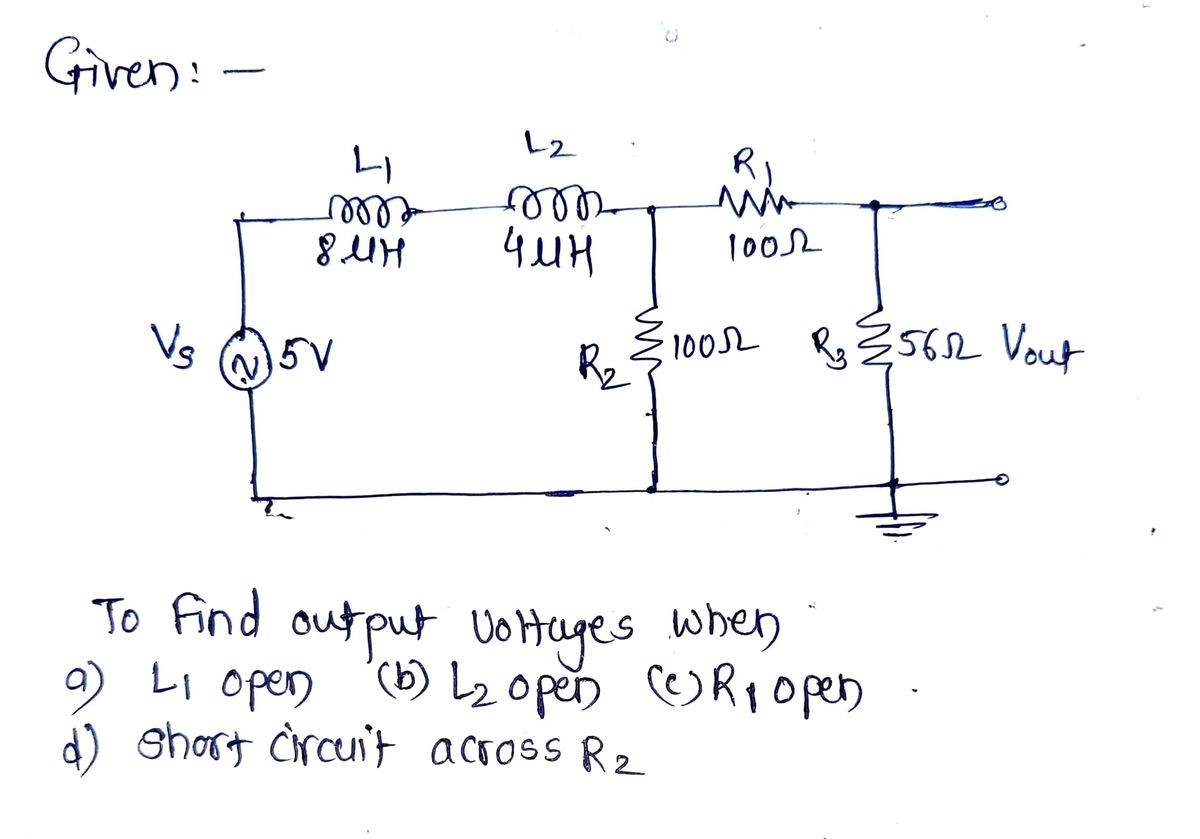 Given: —
L1 L2 R1
8 μH 4 μH 100Ω
Vs 5V R2 100Ω R3 56Ω Vout
To find output Voltages when
a) L1 open (b) L2 open (c) R1 open.
d) Short circuit across R2